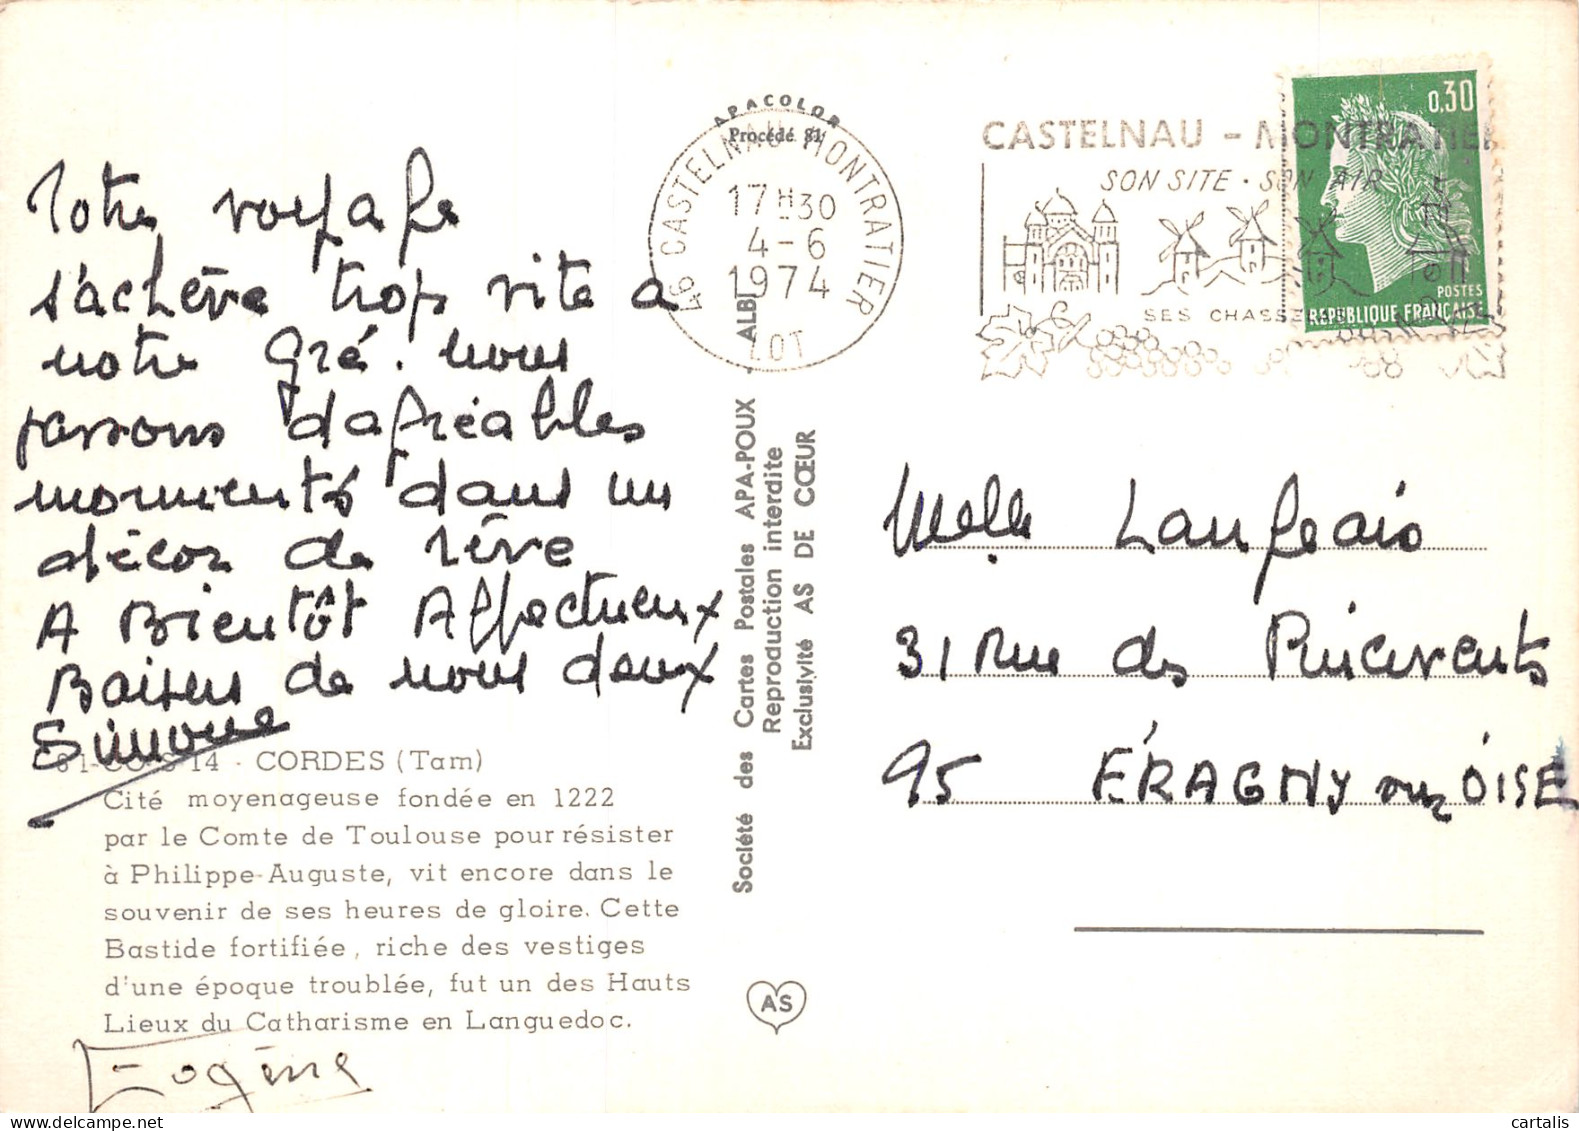 APACOLOR
Procédé 81
46 CASTELNAU-MONTRATIER
17 H 30
4-6
1974
LOT
CASTELNAU - MONTRATIER
SON SITE · SON AIR
SES CHASSE
0,30
POSTES
REPUBLIQUE FRANÇAISE
Notre voyage
s'achève trop vite a
notre Gré. nous
passons d'agréables
moments dans un
décor de rêve
A Bientôt Affectueux
Baisers de nous deux
Simone
14 - CORDES (Tam)
Cité moyenageuse fondée en 1222
par le Comte de Toulouse pour résister
à Philippe-Auguste, vit encore dans le
souvenir de ses heures de gloire. Cette
Bastide fortifiée, riche des vestiges
d'une époque troublée, fut un des Hauts
Lieux du Catharisme en Languedoc.
Eugène
Société des Cartes Postales APA-POUX - ALBI
Reproduction interdite
Exclusivité AS DE CŒUR
AS
Melle Langeais
31 Rue des Pincevents
95 ÉRAGNY sur OISE
cartalis